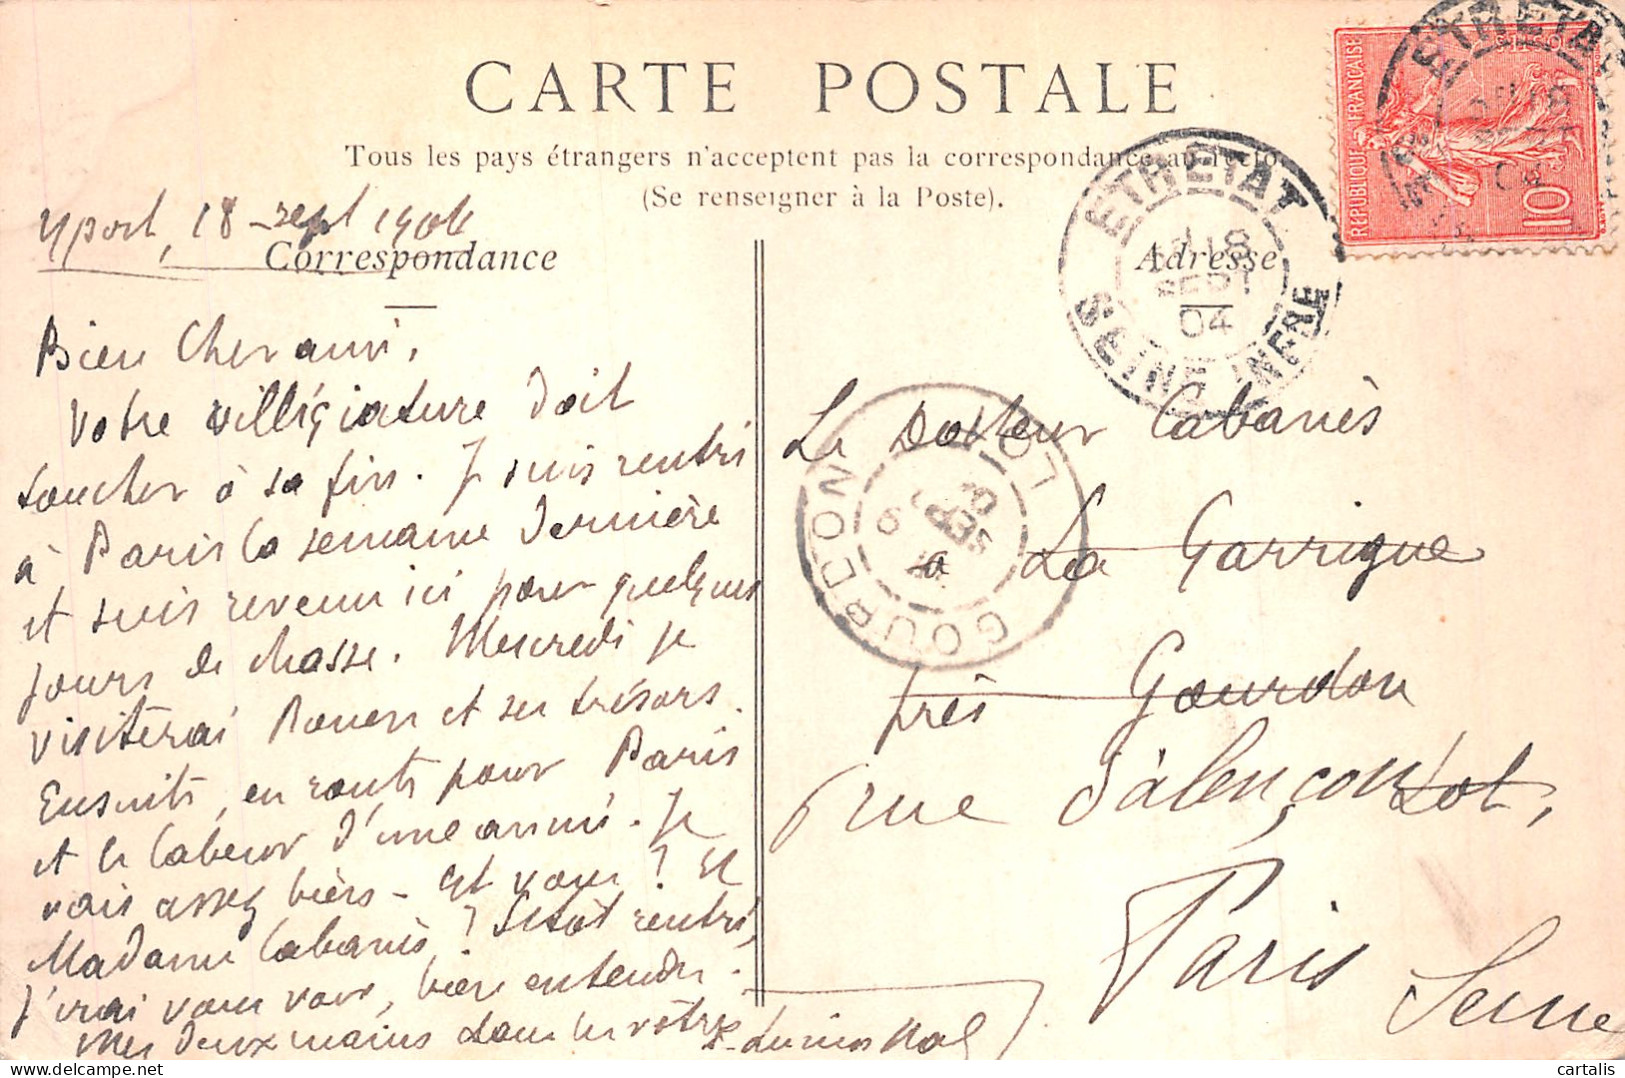 CARTE POSTALE
Tous les pays étrangers n'acceptent pas la correspondance au recto
(Se renseigner à la Poste).
Yport, 18 sept 1904
Correspondance
Bien Cher ami,
Votre villégiature doit
toucher à sa fin. Je suis rentré
à Paris la semaine dernière
et suis revenu ici pour quelques
jours de chasse. Mercredi je
visiterai Rouen et ses trésors.
Ensuite, en route pour Paris
et le labeur d'une année. Je
vais assez bien - et vous? Et
Madame Cabanès? Sitôt rentré,
j'irai vous voir, bien entendu.
Mes deux mains dans les vôtres
Lucien
Adresse
Le Docteur Cabanès
à La Garrigue
près Gourdon
Lot,
rue d'Alençon
Paris
Seine
ETRETAT
18
SEPT
04
SEINE INFRE
GOURDON
LOT
SEPT
04
ETRETAT
04
REPUBLIQUE FRANÇAISE
10c
POSTES
cartalis
delcampe.net